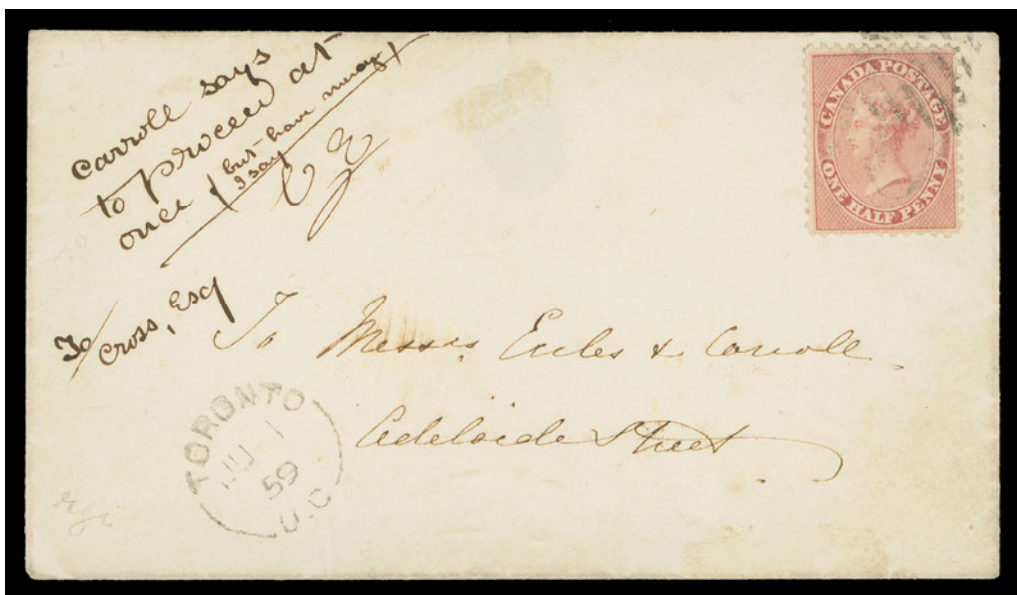 Carroll says
to proceed at
once (but
I say
To
Cross, Esq
CANADA POSTAGE
ONE HALF PENNY
To Messrs Eccles & Carroll
Adelaide Street
TORONTO
JU 1
59
U.C